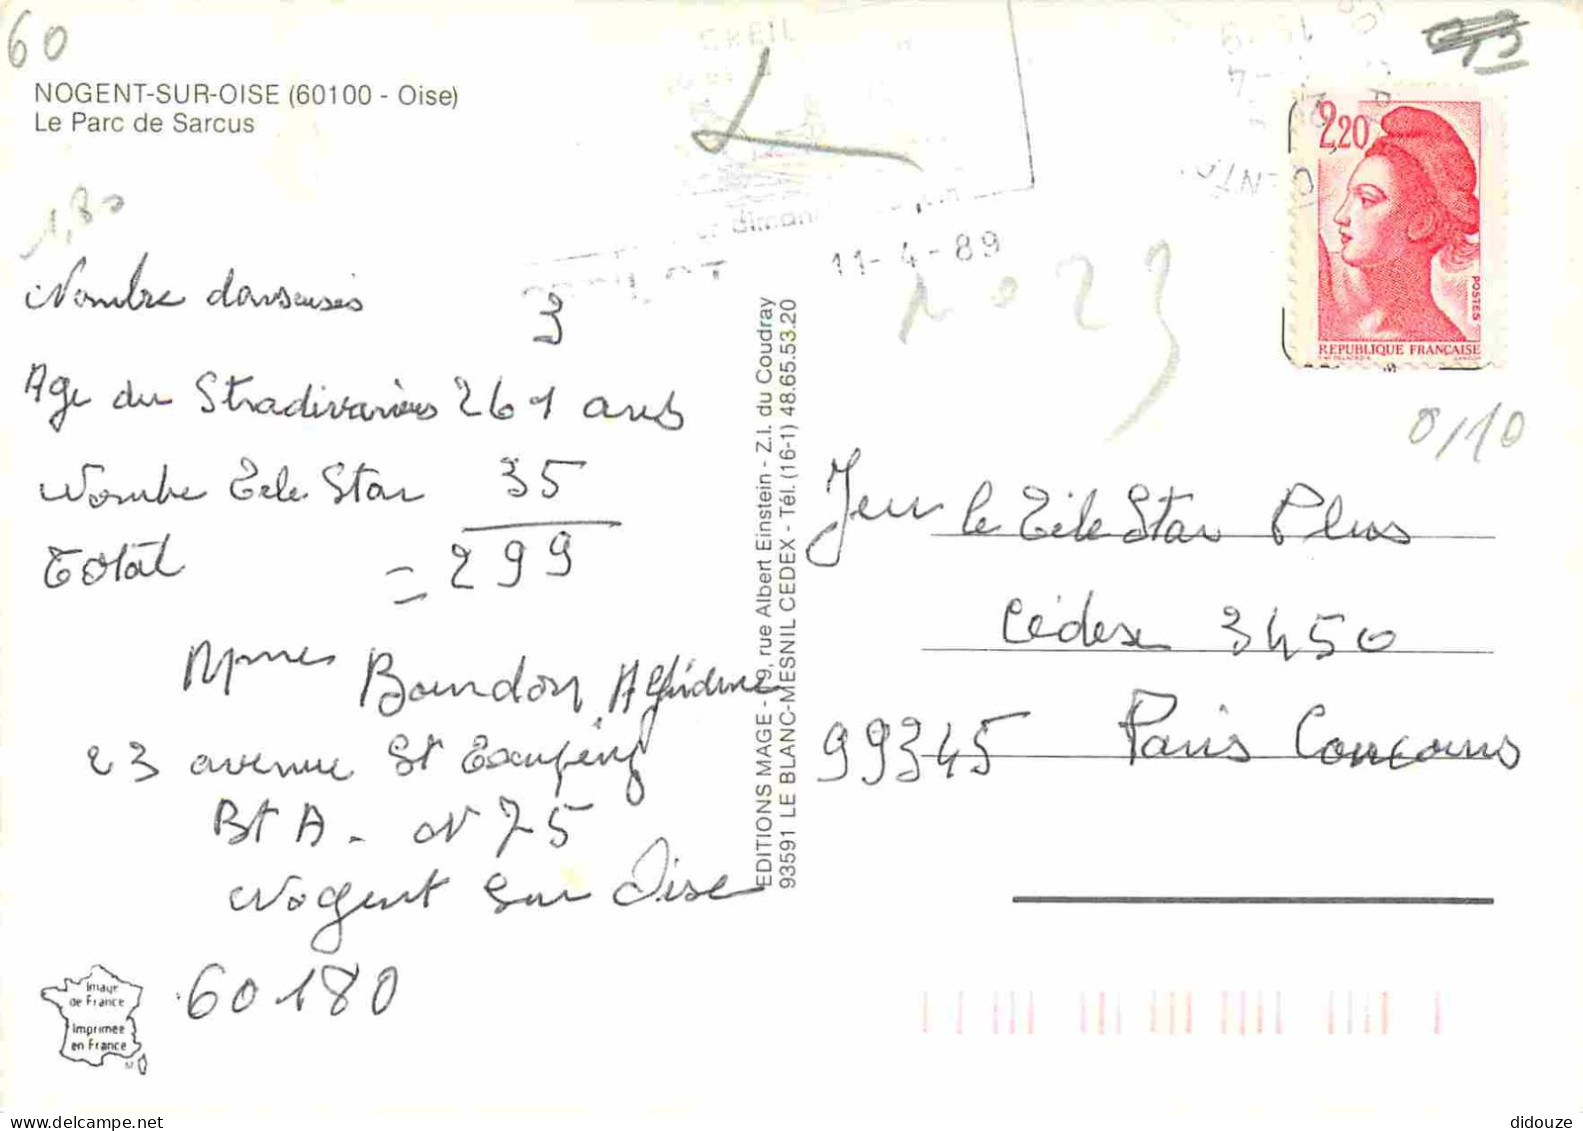 60
NOGENT-SUR-OISE (60100 - Oise)
Le Parc de Sarcus
1,80
Nombre danseuses 3
Age du Stradivarius 261 ans
Nombre Tele Star 35
Total = 299
Mme Bourdon
23 avenue St Exupéry
Bt A - N 75
Nogent sur Oise
60180
Image
de France
Imprimée
en France
EDITIONS MAGE - 9, rue Albert Einstein - Z.I. du Coudray
93591 LE BLANC-MESNIL CEDEX - Tél. (16-1) 48.65.53.20
CREIL
dimanche
11-4-89
2,20
POSTES
REPUBLIQUE FRANÇAISE
0/10
Jeu le Téle Star Plus
Cédex 3450
99345 Paris Concours
didouze